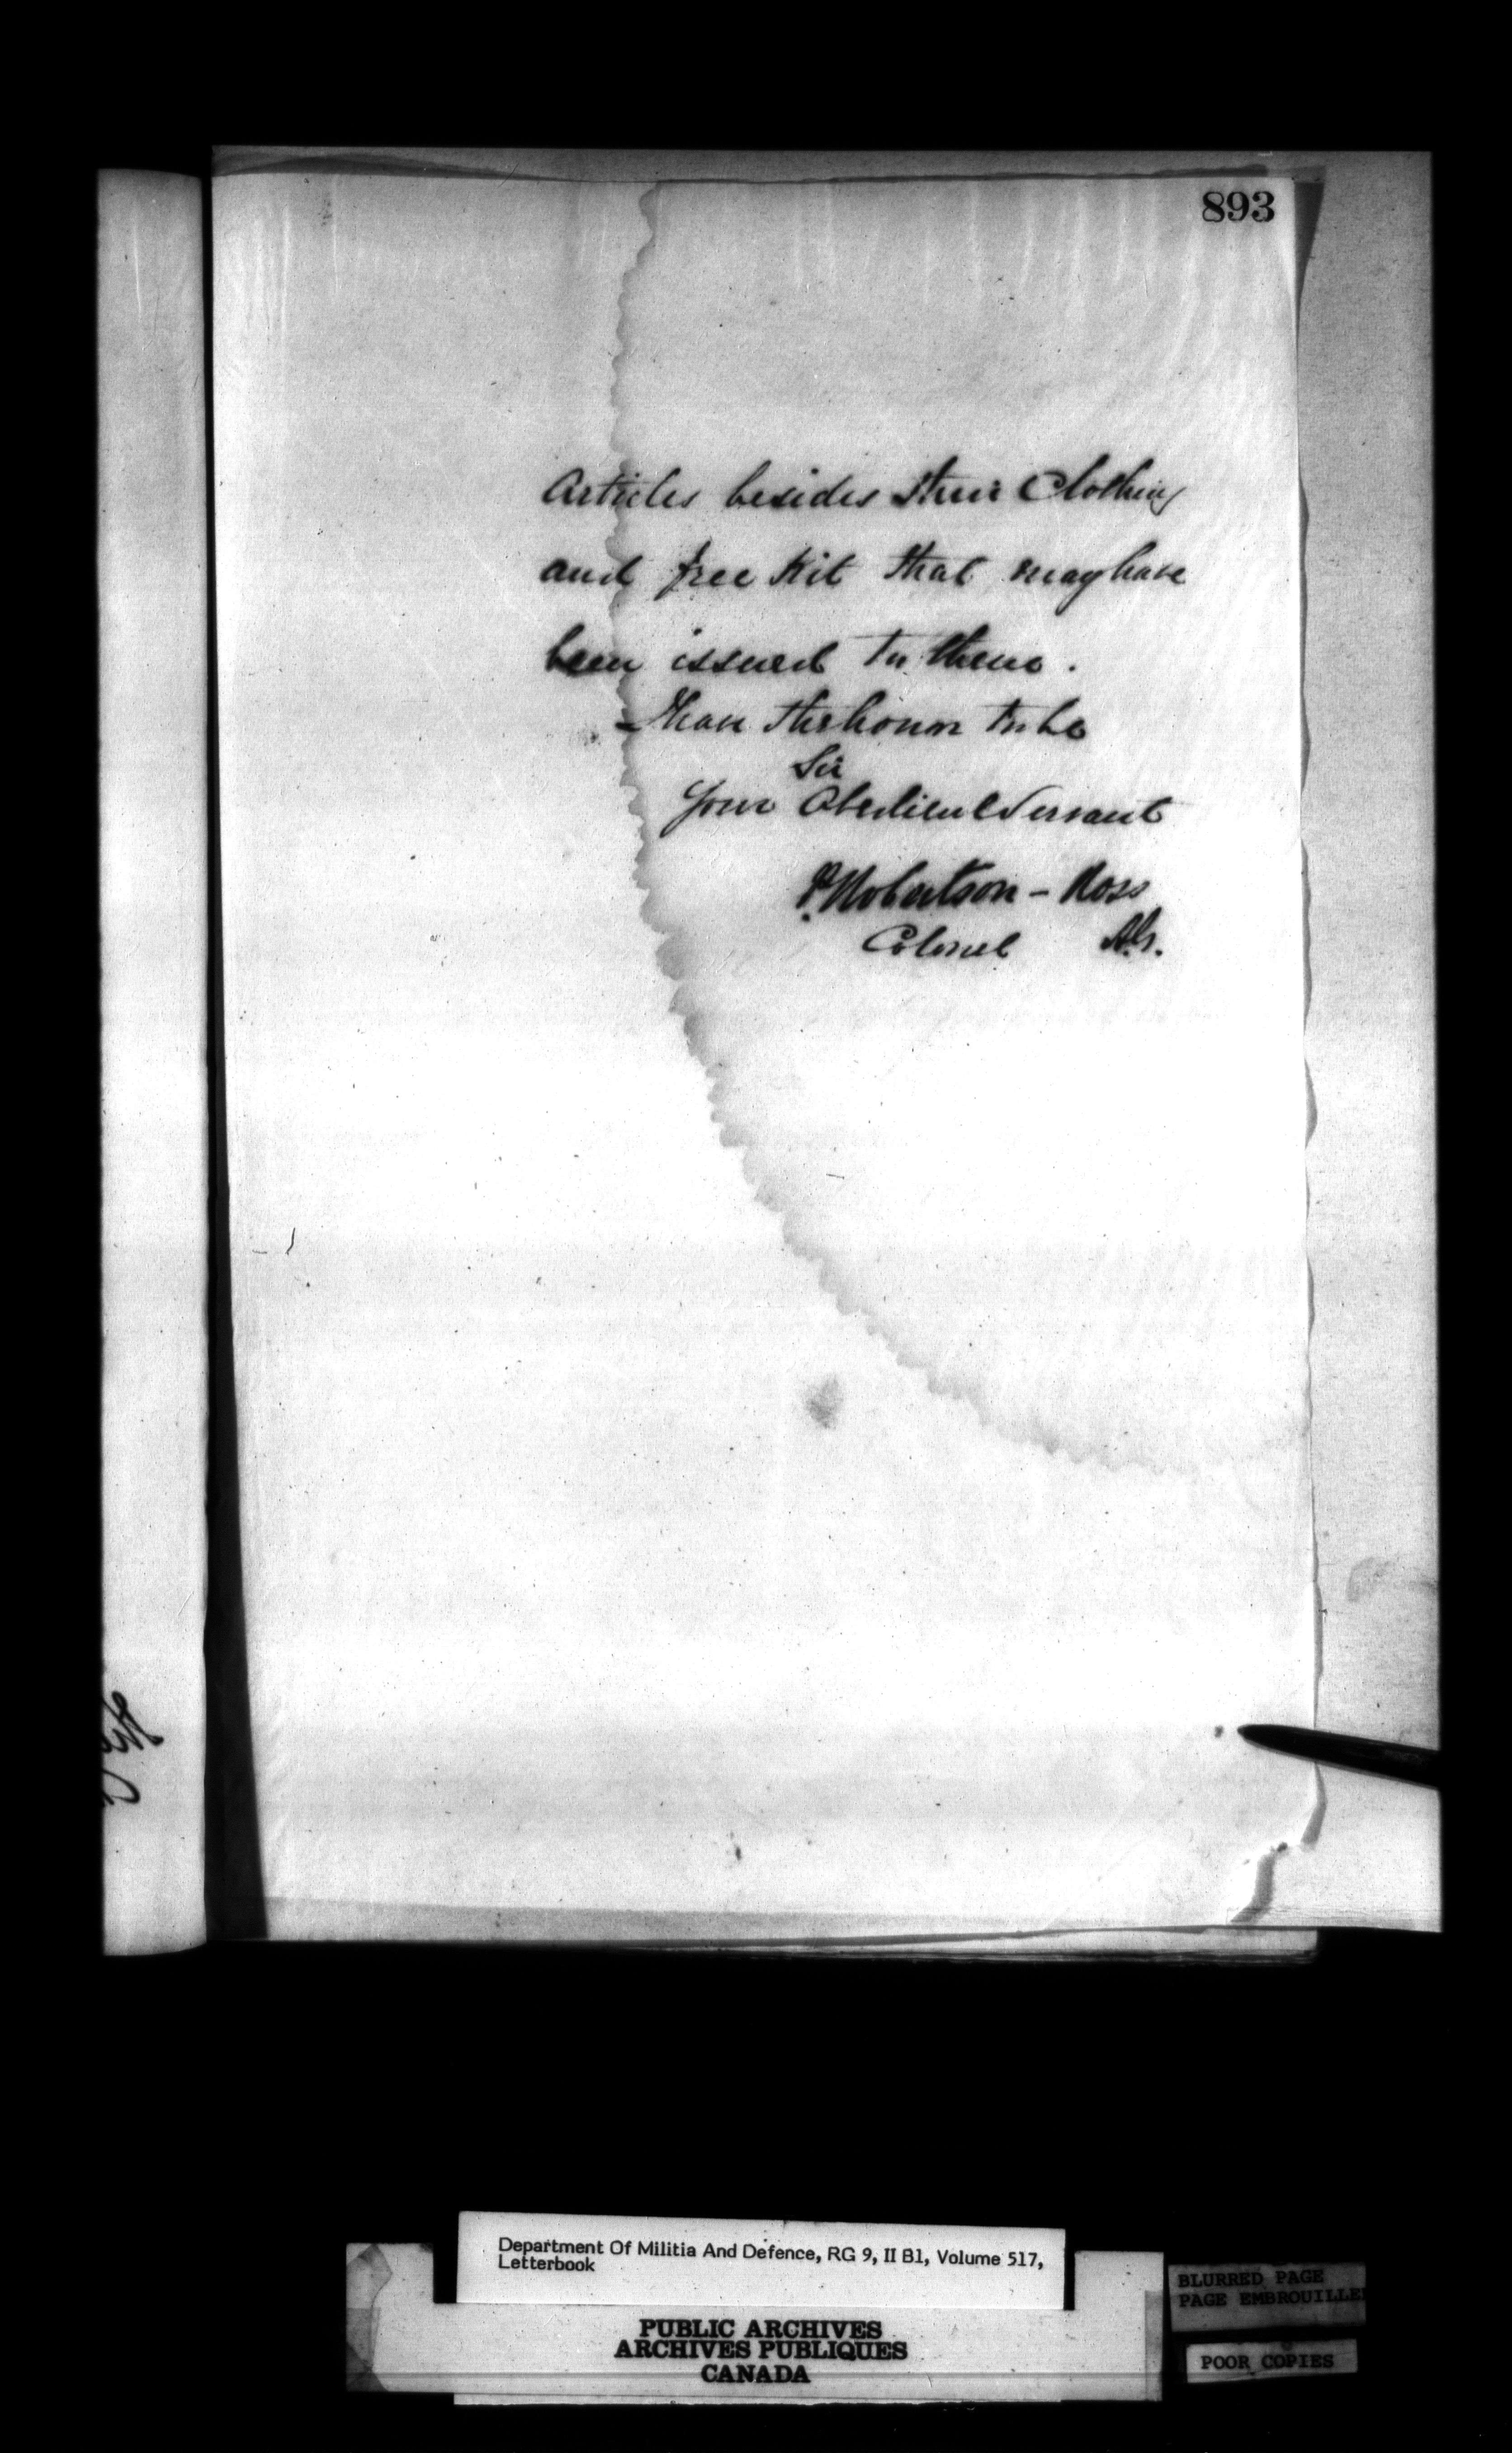 893
Articles besides their Clothing
and free Kit that may have
been issued to them.
I have the honor to be
Sir
Your Obedient Servant
P. Robertson - Ross
Colonel A.G.
Department Of Militia And Defence, RG 9, II B1, Volume 517,
Letterbook
PUBLIC ARCHIVES
ARCHIVES PUBLIQUES
CANADA
BLURRED PAGE
PAGE EMBROUILLE
POOR COPIES